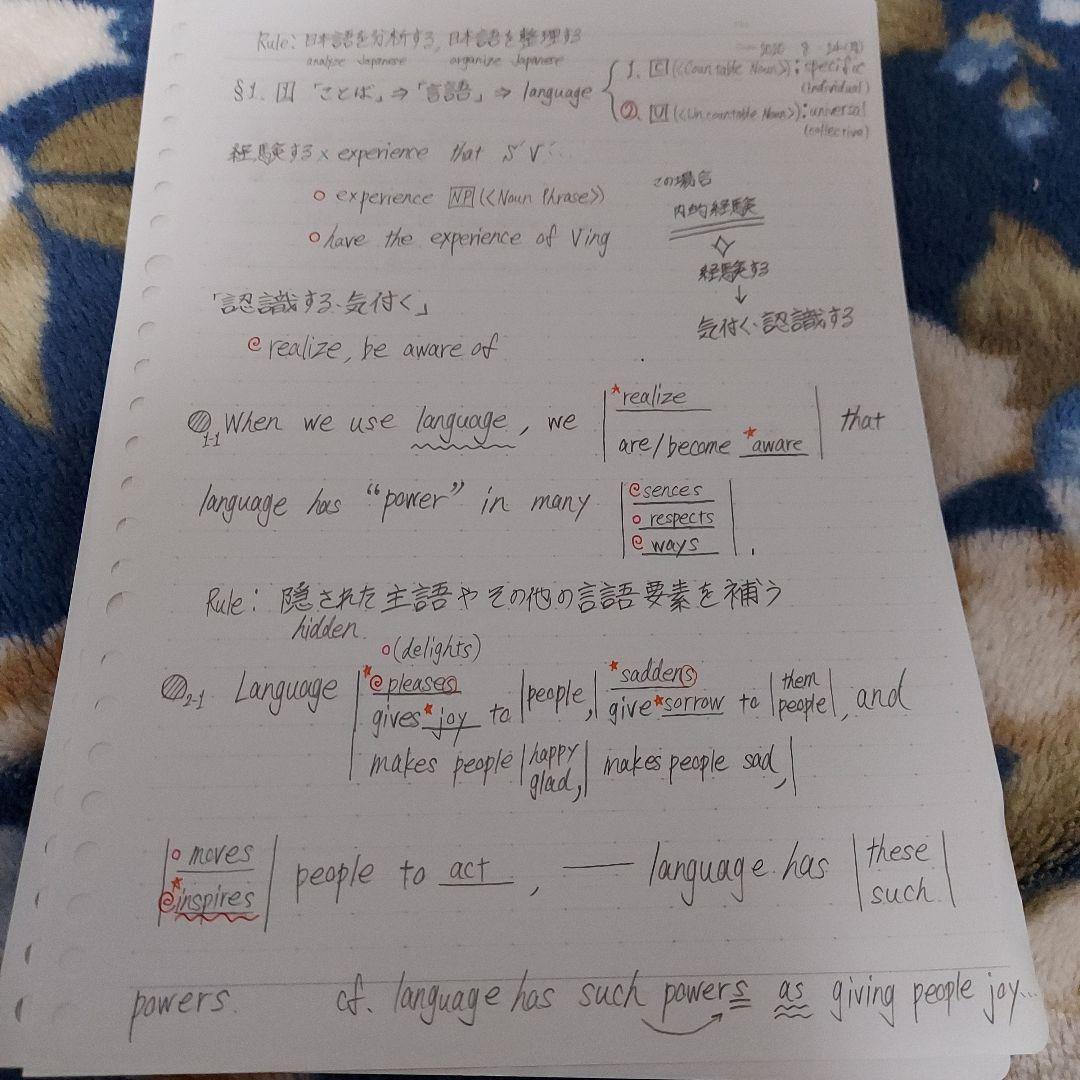 Rule: 日本語を分析する, 日本語を整理する
analyse Japanese organize Japanese
2020 8 24(月)
§1. 1 「ことば」⇒「言語」⇒ language
1. C (<Countable Noun>): specific
(individual)
2. U (<Uncountable Noun>): universal
(collective)
経験する × experience that S V…
○ experience NP (<Noun Phrase>)
○ have the experience of Ving
この場合
内的経験
経験する
↓
気付く・認識する
「認識する・気付く」
◎ realize, be aware of
1-1 When we use language, we
★realize
are/become ★aware
that
language has "power" in many
◎ sences
○ respects
◎ ways
.
Rule: 隠された主語やその他の言語要素を補う
hidden
○(delights)
2-1 Language
★◎ pleases
gives ★joy to
people,
★saddens
give ★sorrow to
them
people
, and
makes people
happy
glad,
makes people sad,
○ moves
★◎inspires
people to act, — language has
these
such
powers. cf. language has such powers as giving people joy…